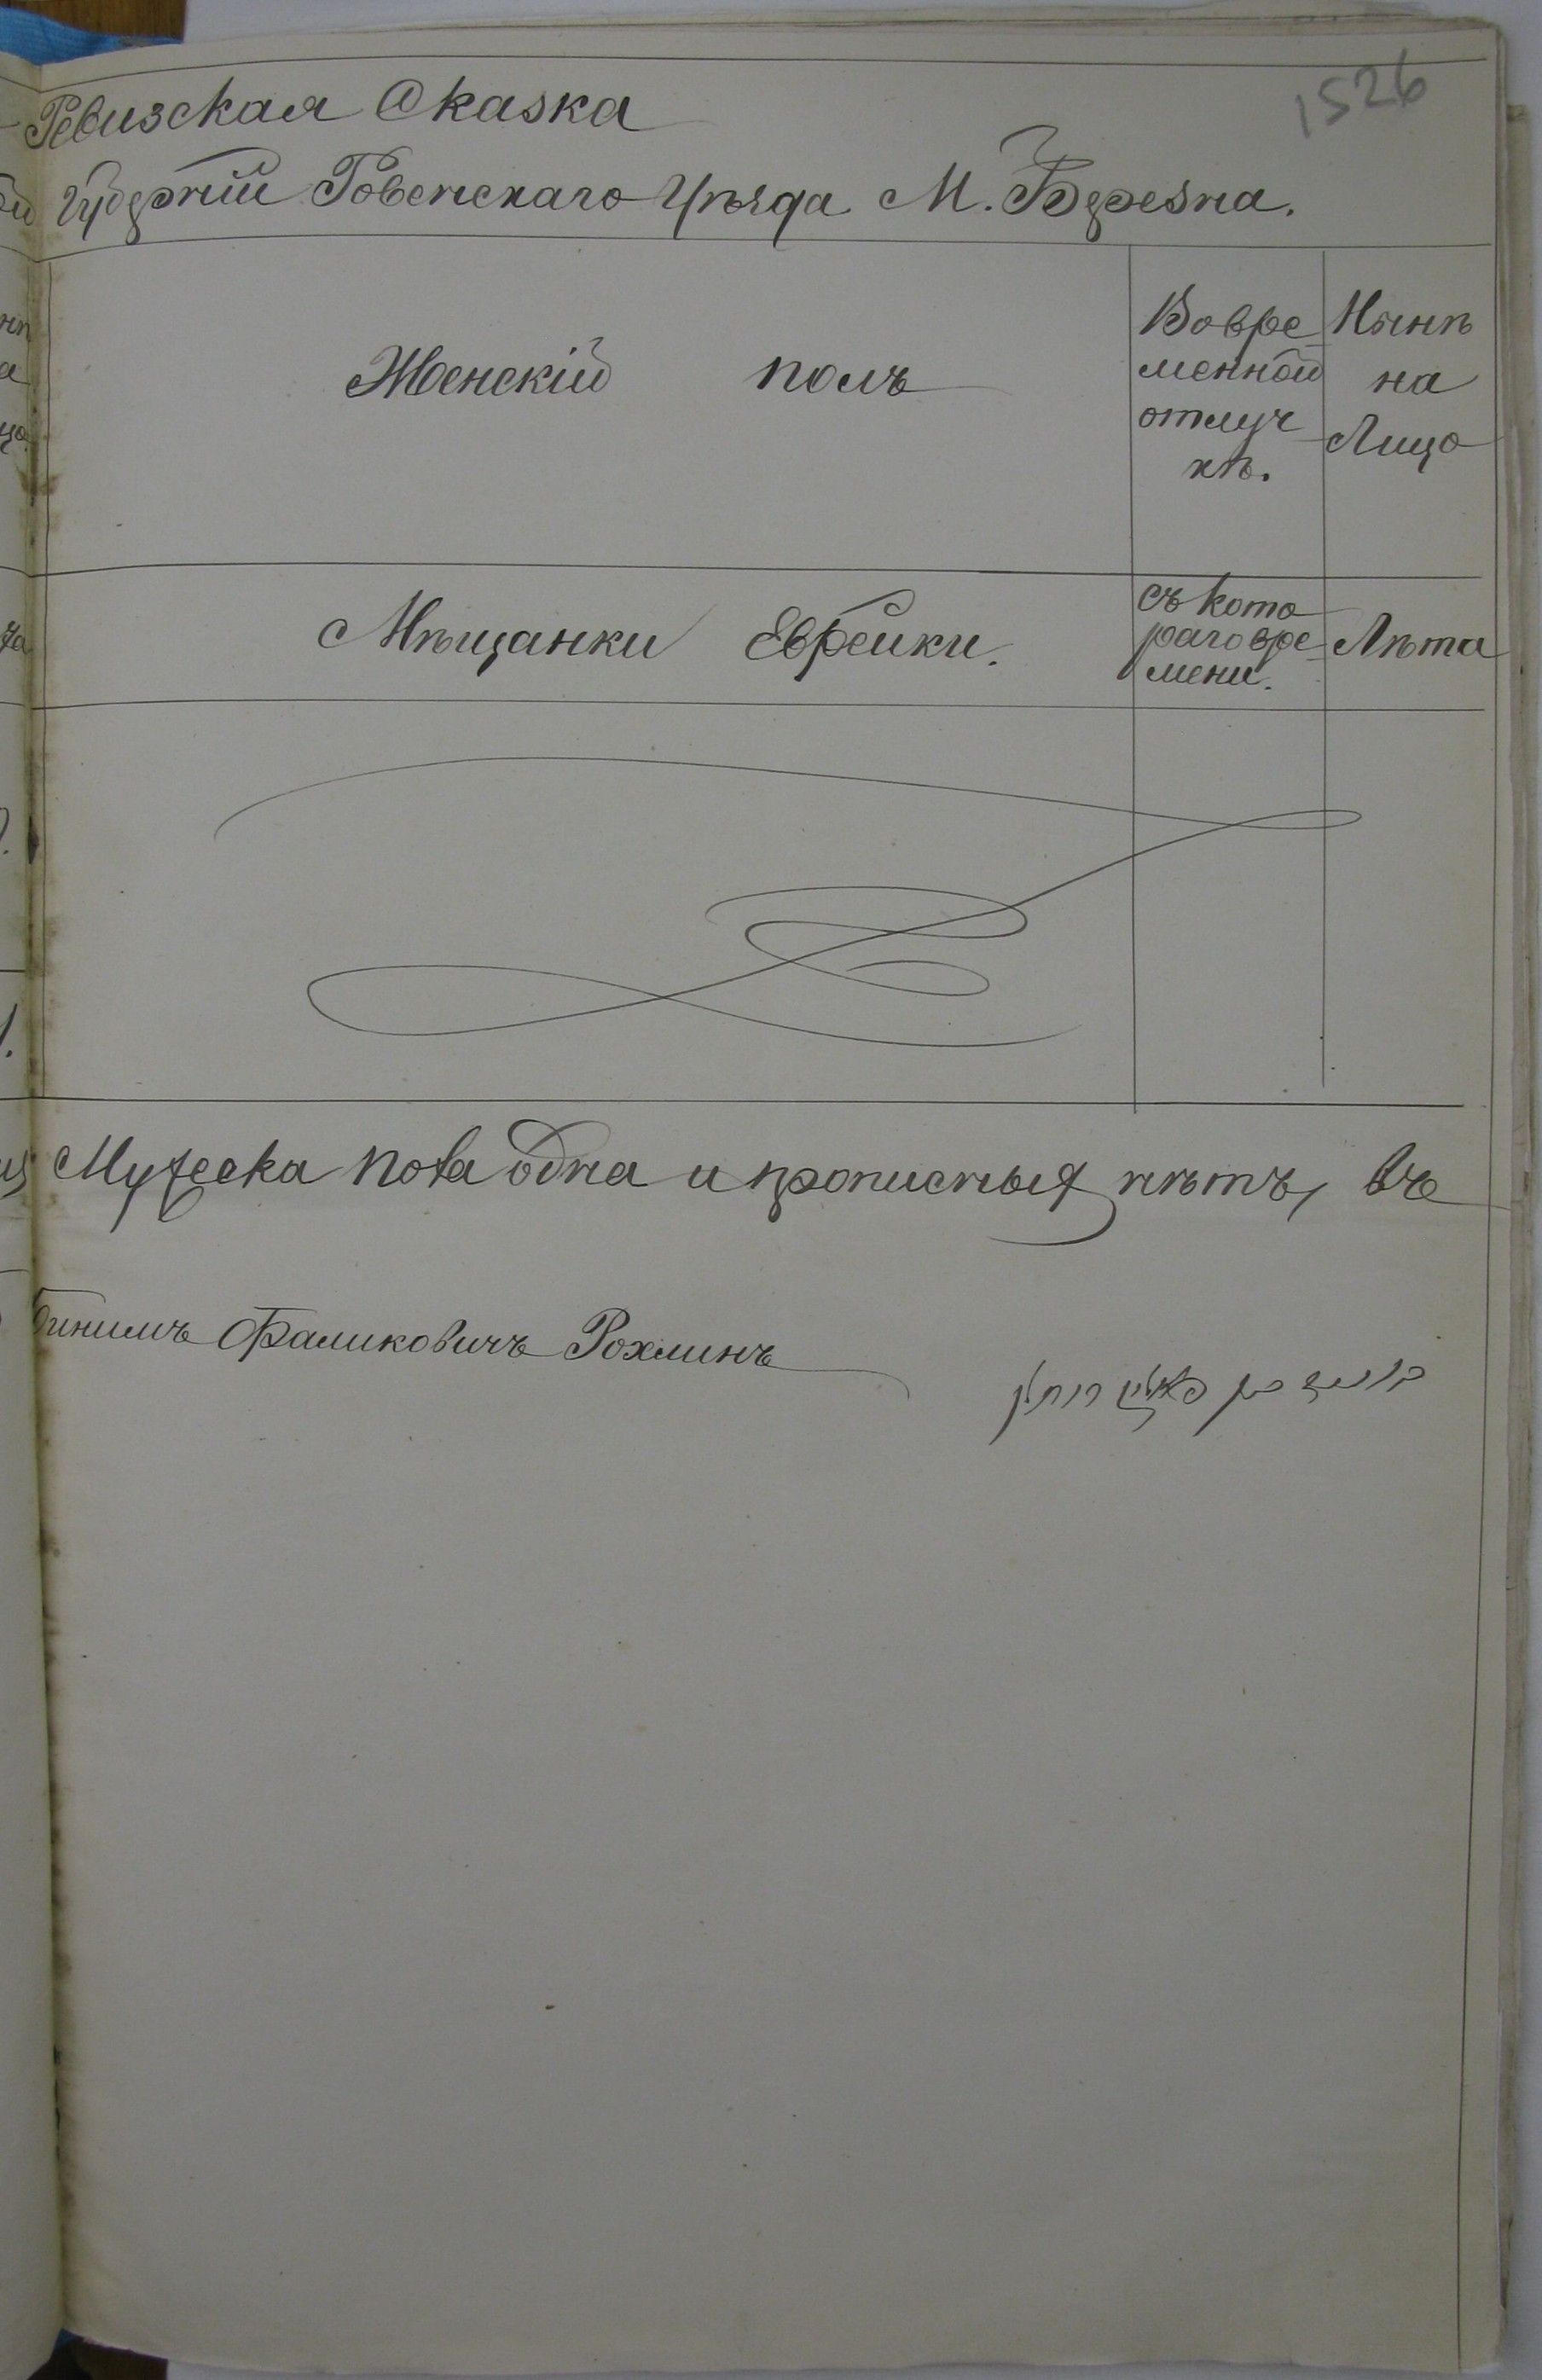 1526
Ревизская Сказка
Губернiи Ровенскаго Уѣзда М. Березна.
Женскiй полъ
Вовре
менной
отлуч
кѣ.
Нынѣ
на
Лицо
Мѣщанки Еврейки.
съ кото
раго вре
мени.
Лѣта
Мужеска пола одна и прописныхъ нѣтъ, въ
Фаликовичъ Рохлинъ